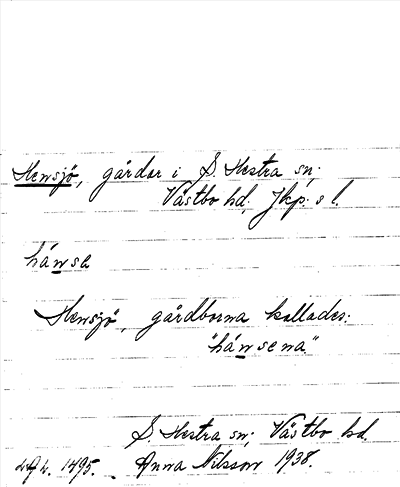 Hensjö, gårdar i S. Hestra sn;
Västbo hd. Jkp. s l.
hánse
Hensjö, gårdborna kallades:
"hánsena."
S. Hestra sn; Västbo hd.
1495. Anna Nilsson 1938.